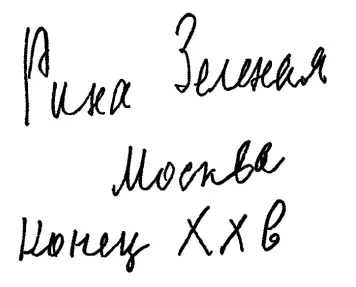 Рина Зеленая
Москва
Конец XX в